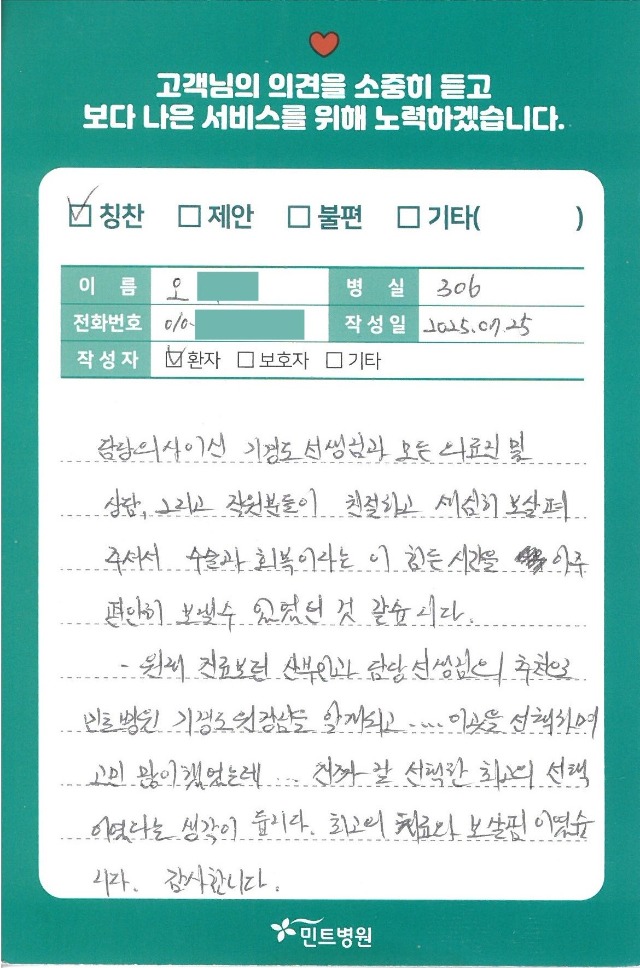 고객님의 의견을 소중히 듣고
보다 나은 서비스를 위해 노력하겠습니다.
칭찬 제안 불편 기타( )
이 름 오 병 실 306
전화번호 010- 작성일 2025.07.25
작성자 환자 보호자 기타
담당의사이신 기경도 선생님과 모든 의료진 및
상담, 그리고 직원분들이 친절하고 세심히 보살펴
주셔서 수술과 회복이라는 이 힘든 시간을 아주
편안히 보낼수 있었던 것 같습니다.
- 원래 진료보던 산부인과 담당선생님의 추천으로
민트병원 기경도원장님을 알게되고.... 이곳을 선택하며
고민 많이했었는데 ... 진짜 잘 선택한 최고의 선택
이였다는 생각이 듭니다. 최고의 치료와 보살핌이였습
니다. 감사합니다.
민트병원